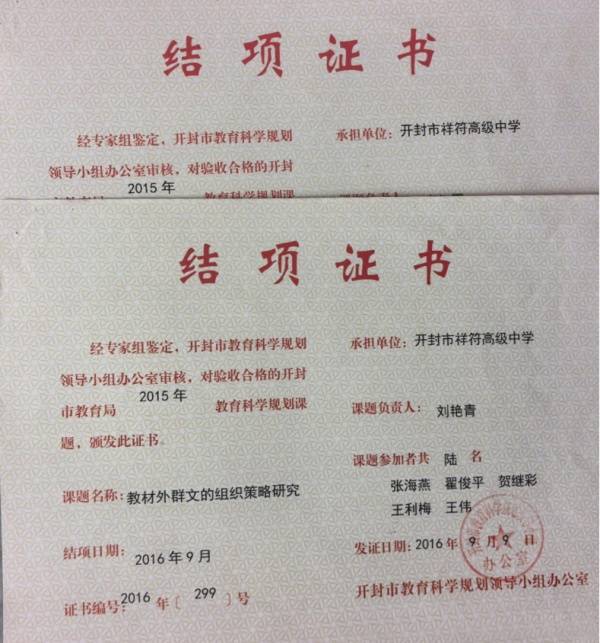 结项证书
经专家组鉴定，开封市教育科学规划
领导小组办公室审核，对验收合格的开封
2015年 教育科学规划课
承担单位：开封市祥符高级中学
结项证书
经专家组鉴定，开封市教育科学规划
领导小组办公室审核，对验收合格的开封
市教育局 2015年 教育科学规划课
题，颁发此证书。
课题名称：教材外群文的组织策略研究
结项日期：2016年9月
证书编号：2016年〔299〕号
承担单位：开封市祥符高级中学
课题负责人：刘艳青
课题参加者共 陆 名
张海燕 翟俊平 贺继彩
王利梅 王伟
发证日期：2016年9月9日
办公室
开封市教育科学规划领导小组办公室